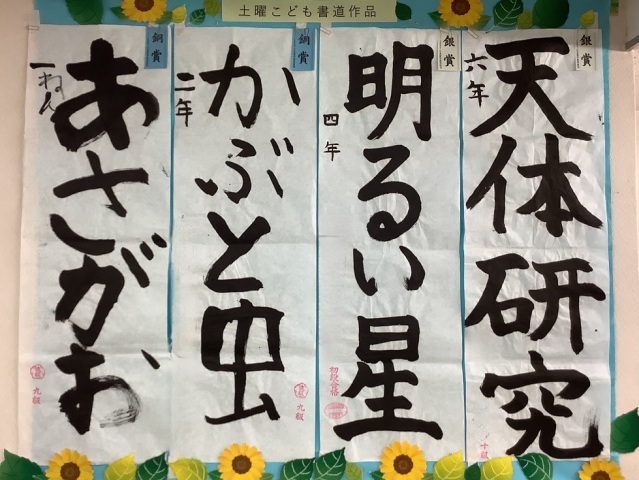 土曜こども書道作品
銀賞
天体研究
六年
十級
銀賞
明るい星
四年
銅賞
かぶと虫
二年
九級
銅賞
あさがお
一ねん
九級